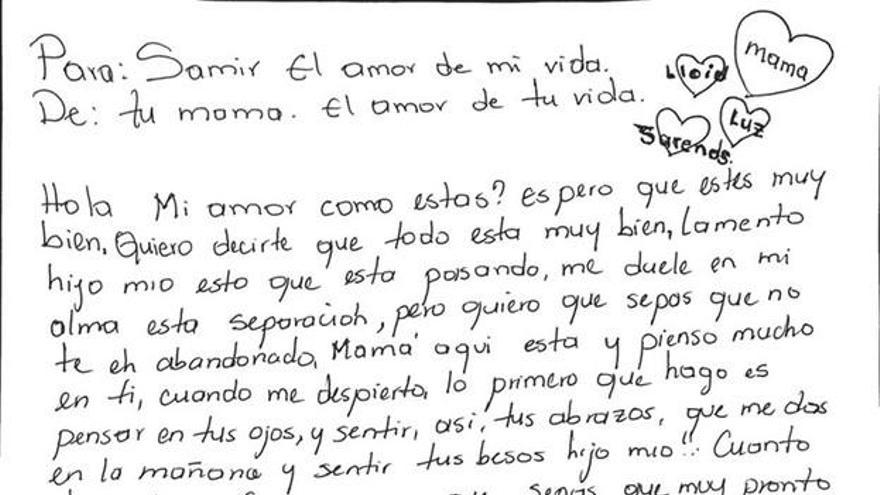 Para: Samir El amor de mi vida.
De: tu mama. El amor de tu vida.
Lloid
mama
Luz
Sarends.
Hola Mi amor como estas? espero que estes muy
bien, Quiero decirte que todo esta muy bien, Lamento
hijo mio esto que esta pasando, me duele en mi
alma esta separacion, pero quiero que sepas que no
te eh abandonado, Mamá aqui esta y pienso mucho
en ti, cuando me despierto, lo primero que hago es
pensar en tus ojos, y sentir, asi, tus abrazos, que me das
en la mañana y sentir tus besos hijo mio!! Cuanto
sepas que muy pronto